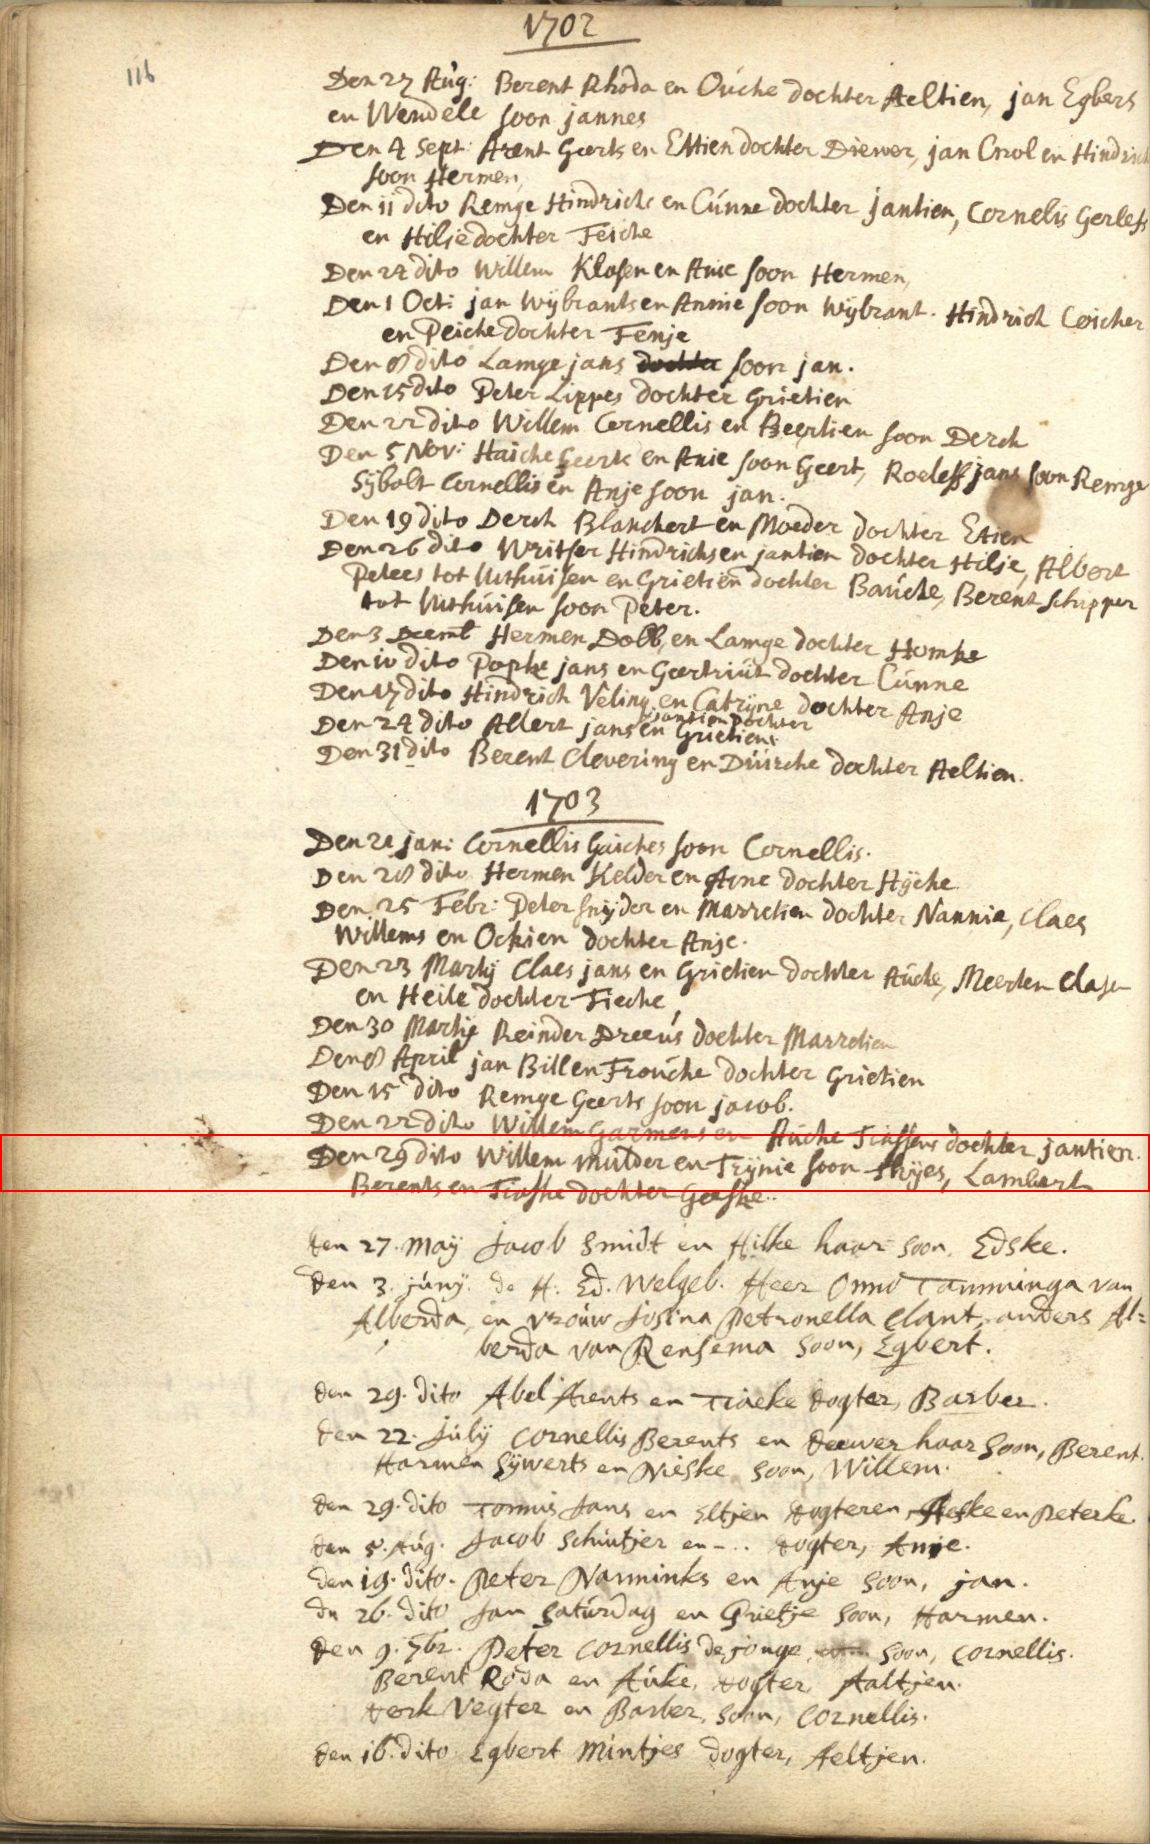 1702
116
Den 27 Aug: Berent Rhoda en Ouche dochter Aeltien, jan Egbers
en Wendele soon jannes
Den 4 Sept: Arent Geerts en Ettien dochter Diewer, jan Crol en Hindrich
soon Hermen,
Den 11 dito Remge Hindrichs en Cúnne dochter jantien, Cornelis Gerlefs
en Hilje dochter Feiche
Den 24 dito Willem Klasen en Anie soon Hermen,
Den 1 Oct: jan Wijbrants en Annie soon Wijbrant. Hindrich Coicher
en Peiche dochter Fenje
Den 8 dito Lamge jans dochter soon jan.
Den 15 dito Peter Lippes dochter Grietien
Den 22 dito Willem Cornellis en Beertien soon Derch
Den 5 Nov: Haiche Geerts en Anie soon Geert, Roeleff jans soon Remge
Sijbolt Cornellis en Anje soon jan.
Den 19 dito Derch Blanchert en Moeder dochter Etien
Den 26 dito Writser Hindrichs en jantien dochter Hilje, Albert
Peters tot Uithúisen en Grietien dochter Baúche, Berent Schipper
tot Uithúisen soon Peter.
Den 3 Decemb Hermen Dobb, en Lamge dochter Homke
Den 10 dito Popke jans en Geertruit dochter Cúnne
Den 17 dito Hindrich Veling en Catrijne dochter Anje
jantien dochter
Den 24 dito Allert jans en Grietiens
Den 31 dito Berent Clevering en Dúirche dochter Aeltien.
1703
Den 21 jan: Cornellis Guiches soon Cornellis.
Den 28 dito Hermen Kelder en Ane dochter Hijche
Den 25 Febr: Peter Snijder en Marretien dochter Nannie, Claes
Willems en Ockien dochter Anje.
Den 23 Martij Claes jans en Grietien dochter Aúche, Meerten Clasen
en Heile dochter Fieche
Den 30 Martij Reinder Dreeús dochter Marretien
Den 8 April jan Bill en Froúche dochter Grietien
Den 15 dito Remge Geerts soon jacob.
Den 22 dito Willem Garmens en Aúche Tiassens dochter jantien.
Den 29 dito Willem múlder en Trijnie soon Thijes, Lambert
Berents en Tiaske dochter Geeske.
den 27. Maij Jacob Smidt en Hilke haar soon, Edske.
den 3. júnij. de H. Ed. Welgeb. Heer Onno Tamminga van
Alberda, en vroúw Josina Petronella Clant, anders Al=
berda van Rensema soon, Egbert.
den 29. dito Abel Arents en Tiaeke dogter, Barber.
den 22. júlij Cornellis Berents en deewer haar soon, Berent.
Harmen Sijwerts en Nieske soon, Willem.
den 29. dito Tonnis Jans en Eltjen dogteren, Heske en Peterke.
den 5. Aúg. Jacob Schúitjer en -.. dogter, Anje.
den 19. dito. Peter Nanninks en Anje soon, jan.
dn 26. dito Jan Satúrdag en Grietje soon, Harmen.
den 9. 7br. Peter Cornellis de jonge, soon, Cornellis.
Berent Roda en Aúke, dogter, Aaltjen.
derk Vegter en Barber, soon, Cornellis.
den 16. dito Egbert Mintjes dogter, Aeltjen.